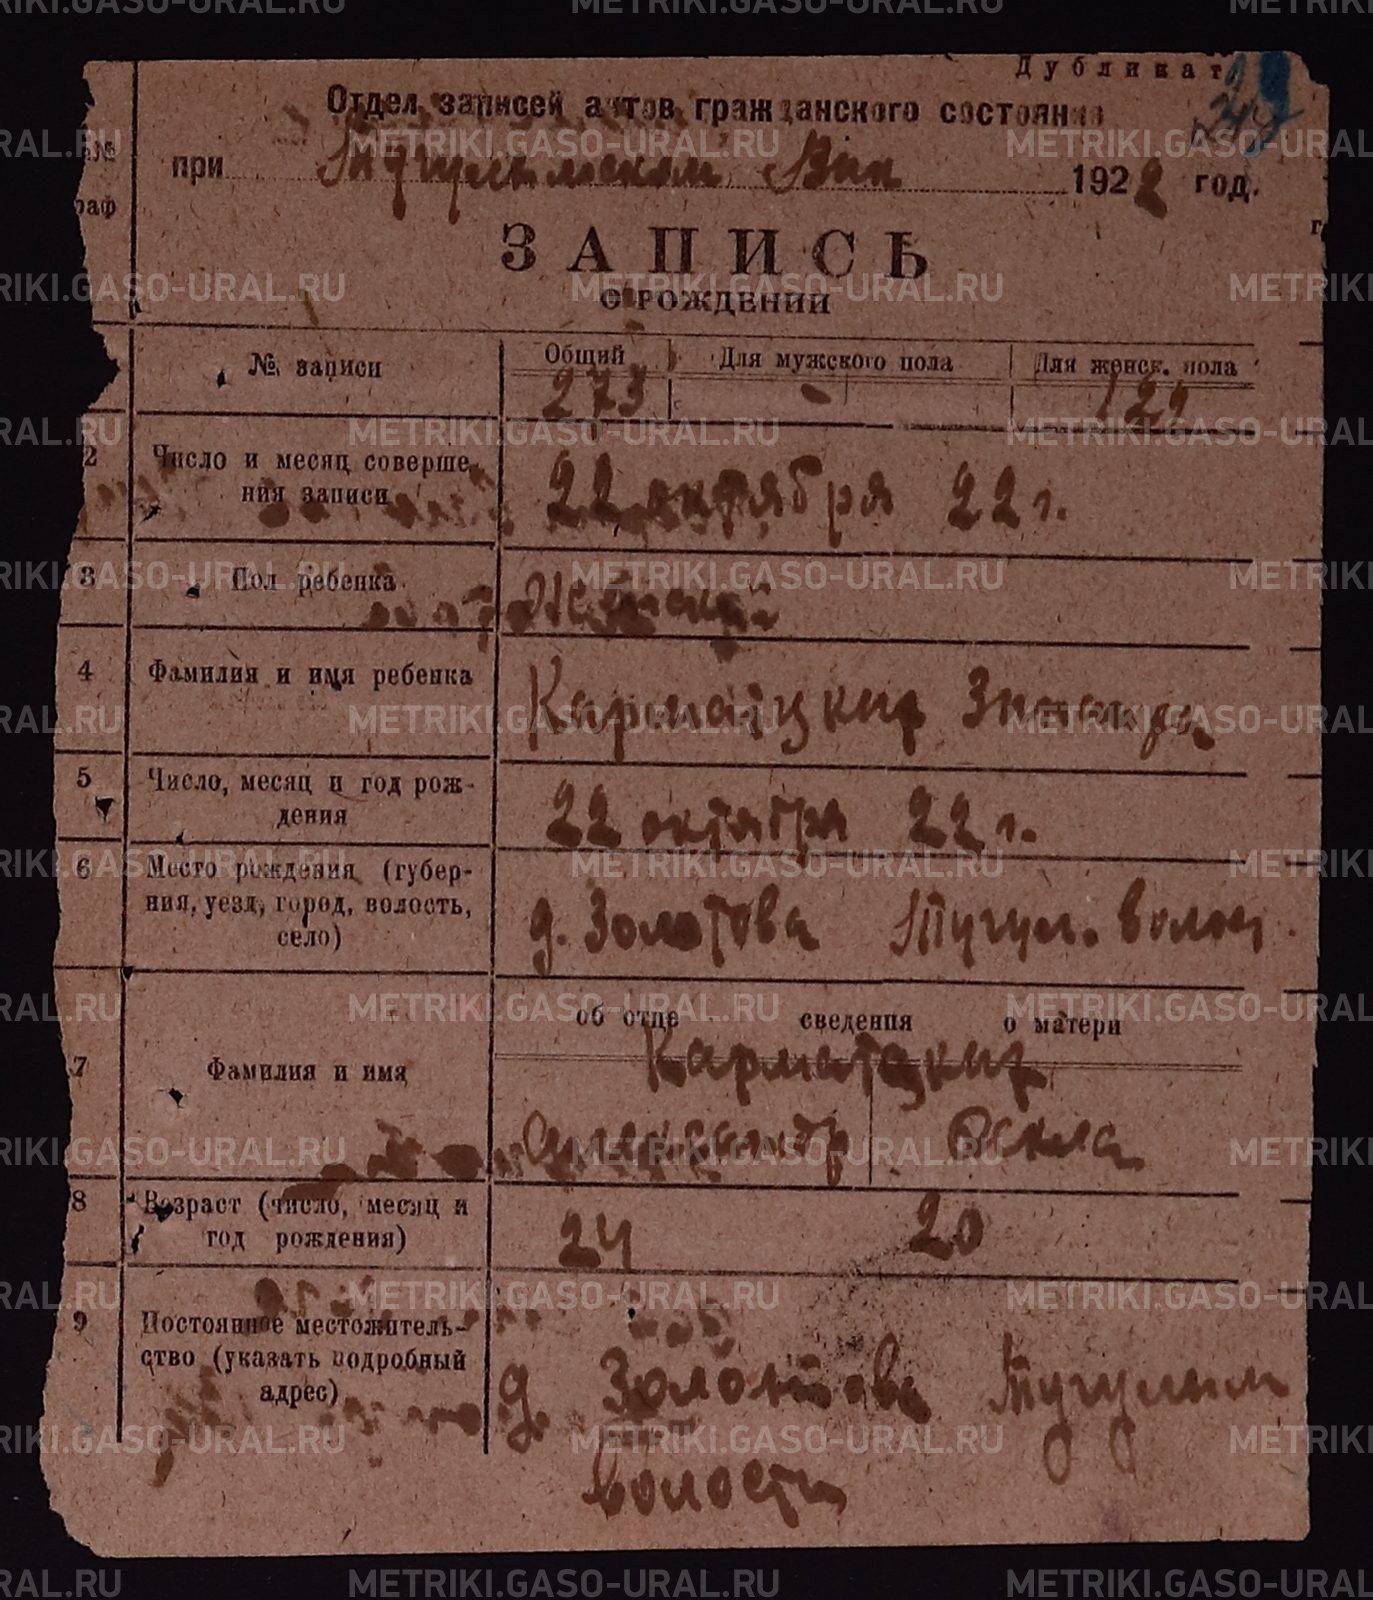 Дубликат
Отдел записей актов гражданского состояния
при Тугулымском Вик 1922 год.
№
раф
ЗАПИСЬ
О РОЖДЕНИИ
№ записи Общий Для мужского пола Для женск. пола
273 -
2 Число и месяц соверше- 22 октября 22 г.
ния записи
3 Пол ребенка Женский
4 Фамилия и имя ребенка Карматских Зинаида
5 Число, месяц и год рож- 22 октября 22 г.
дения
6 Место рождения (губер-
ния, уезд, город, волость, д. Золотова Тугул. волости
село)
об отце сведения о матери
7 Фамилия и имя Карматских
Александр Фекла
8 Возраст (число, месяц и 24 20
год рождения)
9 Постоянное местожитель-
ство (указать подробный д. Золотова Тугулым
адрес)
волости
METRIKI.GASO-URAL.RU